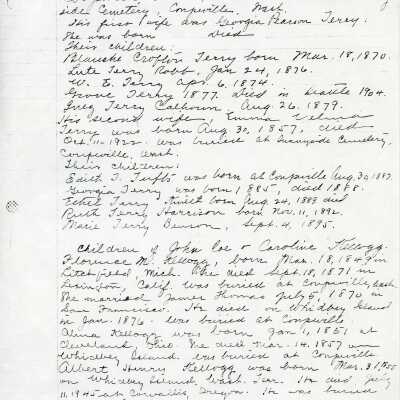 side Cemetery, Coupeville, Wash.
His first wife was Georgia Pearson Terry.
She was born Died
Their children:
Blanche Crofton Terry born Mar. 18, 1870.
Lute Terry Robb, Jan 24, 1876.
W. E. Terry Apr. 6, 1874.
Grove Terry 1877. Died in Seattle 1904.
Greg Terry Calhoun Aug. 26. 1879.
His second wife, Emma Velma
Terry was born Aug 30, 1857, died
Oct. 11-1922 was buried at Sunnyside Cemetery,
Coupeville, Wash.
Their children:
Edith T. Tufts was born at Coupeville Aug 30, 1883
Georgia Terry was born, 1885, died 1888.
Ethel Terry born Aug 24, 1889 died
Ruth Terry Harrison born Nov. 11, 1892.
Marie Terry Benson, Sept. 4, 1895.
Children of John Coe & Caroline Kellogg.
Florence M. Kellogg, born Mar. 18, 1849 in
Litchfield, Mich. She died Sept. 18, 1871 in
Lexington, Calif. was buried at Coupeville, Wash.
She married James Thomas July 5, 1870 in
San Francisco. He died on Whidbey Island
in Jan. 1876. was buried at Coupeville
Alma Kellogg was born Jan 1, 1851 at
Cleveland, Ohio. She died Mar. 14. 1857 on
Whidbey Island. was buried at Coupeville
Albert Henry Kellogg was born Mar. 31,
on Whidbey Island, Wash. Ter. He died July
11, 1945 at Corvallis, Oregon. He was buried